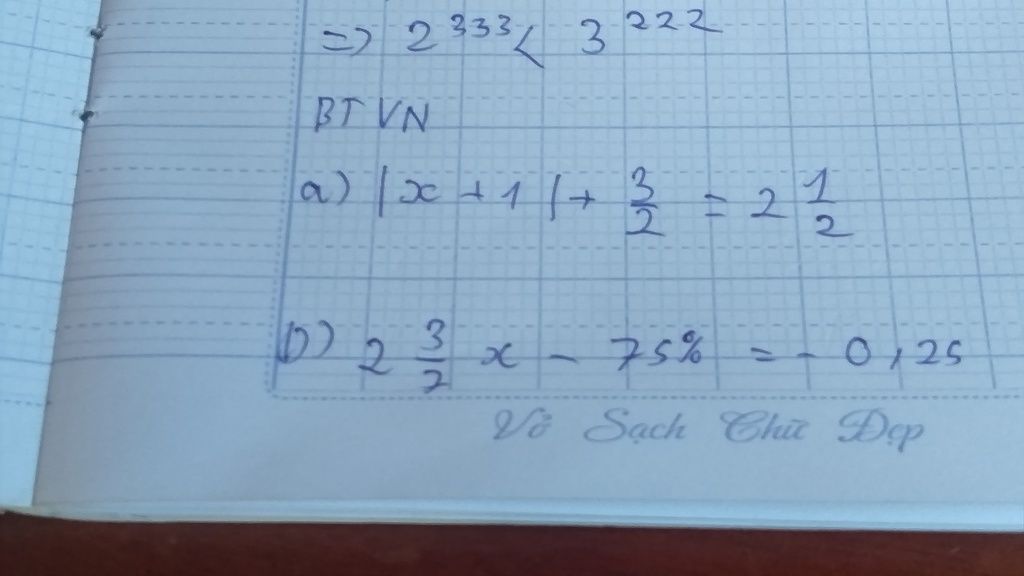 => 2^333 < 3^222
BTVN
a) |x + 1| + 3/2 = 2 1/2
b) 2 3/7 x - 75% = - 0,25
Vở Sạch Chữ Đẹp